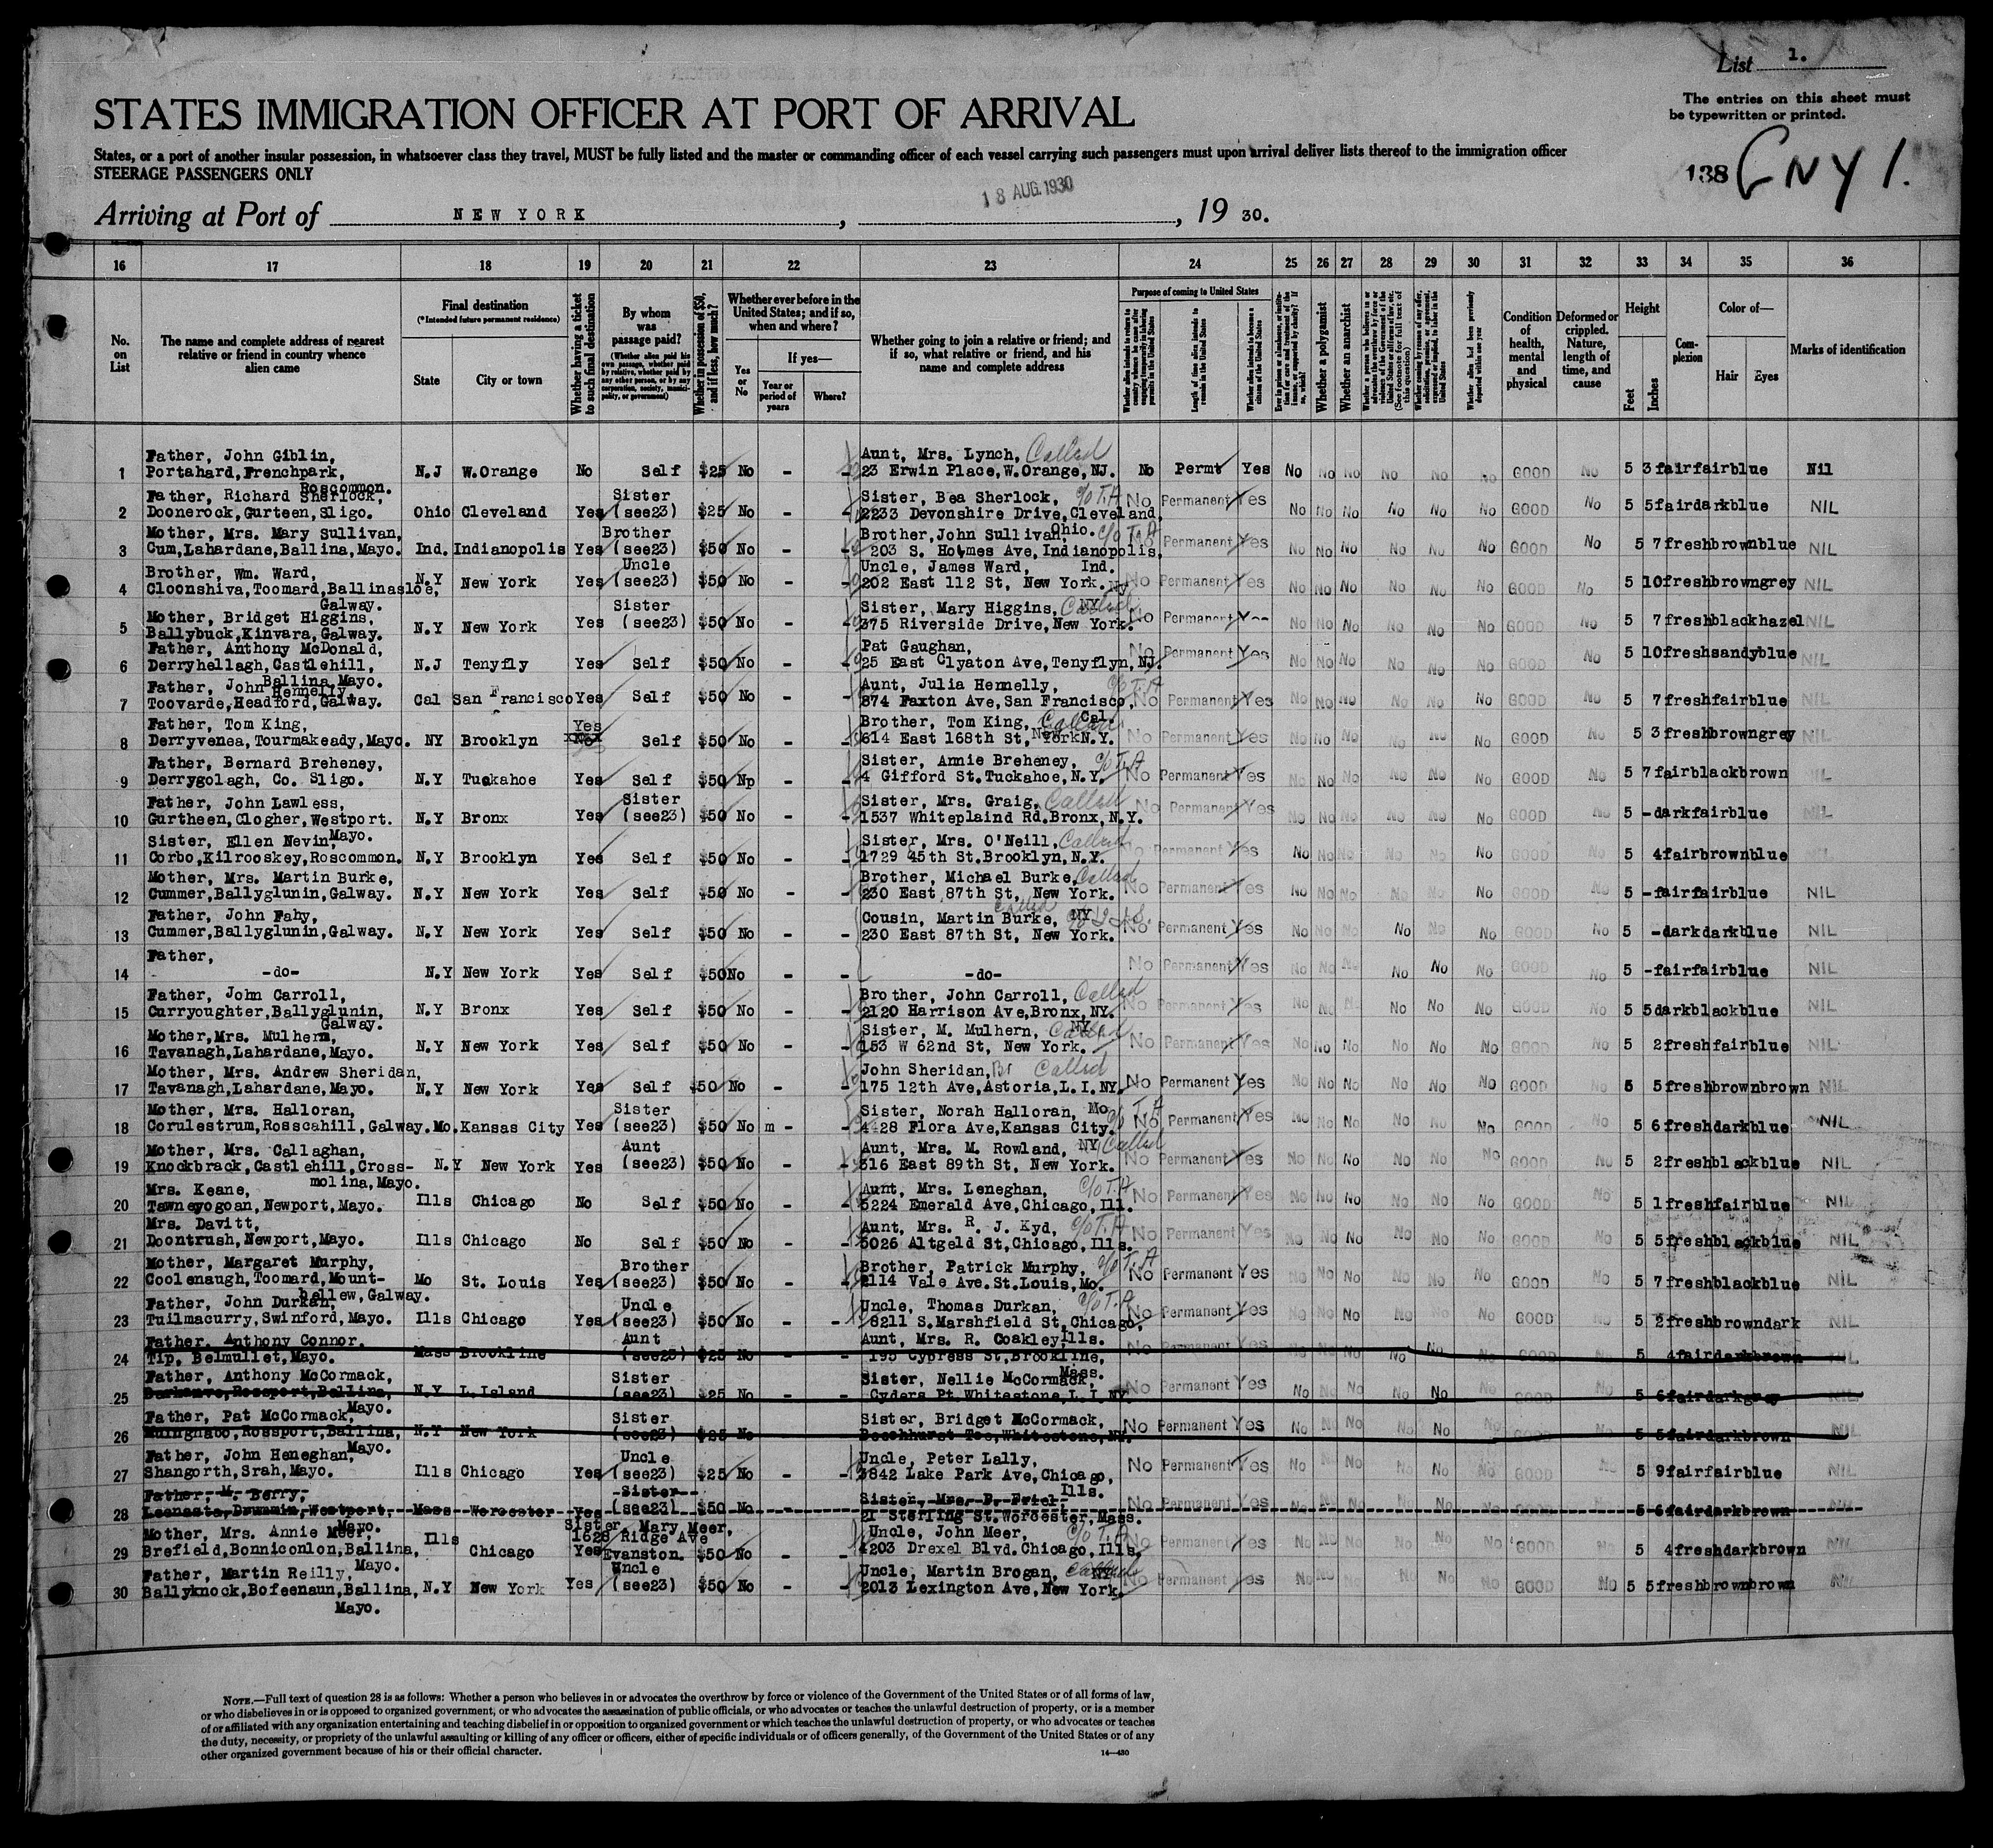 List 1.
The entries on this sheet must
be typewritten or printed.
STATES IMMIGRATION OFFICER AT PORT OF ARRIVAL
States, or a port of another insular possession, in whatsoever class they travel, MUST be fully listed and the master or commanding officer of each vessel carrying such passengers must upon arrival deliver lists thereof to the immigration officer
STEERAGE PASSENGERS ONLY
138
18 AUG. 1930
Arriving at Port of NEW YORK, , 19 30.
16 17 18 19 20 21 22 23 24 25 26 27 28 29 30 31 32 33 34 35 36
No. on List
The name and complete address of nearest relative or friend in country whence alien came
Final destination
(*Intended future permanent residence)
State
City or town
Whether having a ticket to such final destination
By whom was passage paid?
(Whether alien paid his own passage, whether paid by relative, whether paid by any other person, or by any corporation, society, municipality, or government)
Whether in possession of $50, and if less, how much?
Whether ever before in the United States; and if so, when and where?
Yes or No
If yes—
Year or period of years
Where?
Whether going to join a relative or friend; and if so, what relative or friend, and his name and complete address
Purpose of coming to United States
Length of time alien intends to remain in the United States
Whether alien intends to become a citizen of the United States
Whether a polygamist
Whether an anarchist
Condition of health, mental and physical
Deformed or crippled. Nature, length of time, and cause
Height
Feet
Inches
Complexion
Color of—
Hair
Eyes
Marks of identification
1 Father, John Giblin, Portahard,Frenchpark, Roscommon. N.J W.Orange No Self $25 No - - Aunt, Mrs. Lynch, Called 23 Erwin Place,W.Orange, NJ. No Permt Yes No No No No No No GOOD No 5 3 fair fair blue Nil
2 Father, Richard Sherlock, Doonerock,Gurteen,Sligo. Ohio Cleveland Yes Sister (see23) $25 No - - Sister, Bea Sherlock, c/o T.A 2233 Devonshire Drive,Cleveland, Ohio. No Permanent Yes No No No No No No GOOD No 5 5 fair dark blue NIL
3 Mother, Mrs. Mary Sullivan, Cum,Lahardane,Ballina,Mayo. Ind. Indianapolis Yes Brother (see23) $50 No - - Brother,John Sullivan, c/o T.A 203 S. Holmes Ave,Indianapolis, Ind. No Permanent Yes No No No No No No GOOD No 5 7 fresh brown blue NIL
4 Brother, Wm. Ward, Cloonshiva,Toomard,Ballinasloe, Galway. N.Y New York Yes Uncle (see23) $50 No - - Uncle, James Ward, 202 East 112 St, New York. NY No Permanent Yes No No No No No No GOOD No 5 10 fresh brown grey NIL
5 Mother, Bridget Higgins, Ballybuck,Kinvara,Galway. N.Y New York Yes Sister (see23) $50 No - - Sister, Mary Higgins, Called 375 Riverside Drive,New York. NY No Permanent Yes No No No No No No GOOD No 5 7 fresh black hazel NIL
6 Father, Anthony McDonald, Derryhellagh,Castlehill, Ballina,Mayo. N.J Tenyfly Yes Self $50 No - - Pat Gaughan, 25 East Clyaton Ave,Tenyflyn,NJ. No Permanent Yes No No No No No No GOOD No 5 10 fresh sandy blue NIL
7 Father, John Hennelly, Toovarde,Headford,Galway. Cal San Francisco Yes Self $50 No - - Aunt, Julia Hennelly, c/o T.A 874 Faxton Ave,San Francisco, Cal. No Permanent Yes No No No No No No GOOD No 5 7 fresh fair blue NIL
8 Father, Tom King, Derryvenea,Tourmakeady,Mayo. NY Brooklyn Yes Self $50 No - - Brother, Tom King, Called 614 East 168th St, New York N.Y. No Permanent Yes No No No No No No GOOD No 5 3 fresh brown grey NIL
9 Father, Bernard Breheney, Derrygolagh, Co. Sligo. N.Y Tuckahoe Yes Self $50 Np - - Sister, Annie Breheney, c/o T.A 4 Gifford St.Tuckahoe,N.Y. No Permanent Yes No No No No No No GOOD No 5 7 fair black brown NIL
10 Father, John Lawless, Gurtheen,Clogher,Westport. Mayo. N.Y Bronx Yes Sister (see23) $50 No - - Sister, Mrs. Graig, Called 1537 Whiteplaind Rd.Bronx,N.Y. No Permanent Yes No No No No No No GOOD No 5 - dark fair blue NIL
11 Sister, Ellen Nevin, Corbo,Kilrooskey,Roscommon. N.Y Brooklyn Yes Self $50 No - - Sister, Mrs. O'Neill, Called 1729 45th St.Brooklyn,N.Y. No Permanent Yes No No No No No No GOOD No 5 4 fair brown blue
12 Mother, Mrs. Martin Burke, Cummer,Ballyglunin,Galway. N.Y New York Yes Self $50 No - - Brother, Michael Burke, Called 230 East 87th St, New York. NY No Permanent Yes No No No No No No GOOD No 5 - fair fair blue NIL
13 Father, John Fahy, Cummer,Ballyglunin,Galway. N.Y New York Yes Self $50 No - - Cousin, Martin Burke, Called 230 East 87th St, New York. No Permanent Yes No No No No No No GOOD No 5 - dark dark blue NIL
14 Father, -do- N.Y New York Yes Self $50 No - - -do- No Permanent Yes No No No No No No GOOD No 5 - fair fair blue NIL
15 Father, John Carroll, Curryoughter,Ballyglunin, Galway. N.Y Bronx Yes Self $50 No - - Brother, John Carroll, Called 2120 Harrison Ave,Bronx,NY. No Permanent Yes No No No No No No GOOD No 5 5 dark black blue NIL
16 Mother,Mrs. Mulhern, Tavanagh,Lahardane,Mayo. N.Y New York Yes Self $50 No - - Sister, M. Mulhern, Called 153 W 62nd St, New York. NY No Permanent Yes No No No No No No GOOD No 5 2 fresh fair blue NIL
17 Mother, Mrs. Andrew Sheridan, Tavanagh,Lahardane,Mayo. N.Y New York Yes Self $50 No - - John Sheridan, Br Called 175 12th Ave,Astoria,L.I.NY. No Permanent Yes No No No No No No GOOD No 5 5 fresh brown brown NIL
18 Mother, Mrs. Halloran, Corulestrum,Rosscahill,Galway. Mo. Kansas City Yes Sister (see23) $50 No m - - Sister, Norah Halloran, c/o T.A 4428 Flora Ave,Kansas City. Mo. No Permanent Yes No No No No No No GOOD No 5 6 fresh dark blue NIL
19 Mother, Mrs. Callaghan, Knockbrack,Castlehill,Crossmolina,Mayo. N.Y New York Yes Aunt (see23) $50 No - - Aunt, Mrs. M. Rowland, NY Called 316 East 89th St, New York. No Permanent Yes No No No No No No GOOD No 5 2 fresh black blue NIL
20 Mrs. Keane, Tawneyogoan,Newport,Mayo. Ills Chicago No Self $50 No - - Aunt, Mrs. Leneghan, c/o T.A 5224 Emerald Ave,Chicago,Ill. No Permanent Yes No No No No No No GOOD No 5 1 fresh fair blue NIL
21 Mrs. Davitt, Doontrush,Newport,Mayo. Ills Chicago No Self $50 No - - Aunt, Mrs. R. J. Kyd, c/o T.A 5026 Altgeld St,Chicago,Ills. No Permanent Yes No No No No No No GOOD No 5 5 fresh black blue NIL
22 Mother, Margaret Murphy, Coolenaugh,Toomard,Mount-bellew,Galway. Mo St. Louis Yes Brother (see23) $50 No - - Brother, Patrick Murphy, c/o T.A 2114 Vale Ave.St.Louis,Mo. No Permanent Yes No No No No No No GOOD No 5 7 fresh black blue NIL
23 Father, John Durkan, Tuilmacurry,Swinford,Mayo. Ills Chicago Yes Uncle (see23) $50 No - - Uncle, Thomas Durkan, c/o T.A 8211 S.Marshfield St,Chicago, Ills. No Permanent Yes No No No No No No GOOD No 5 2 fresh brown dark NIL
24 Father. Anthony Connor. Tip, Belmullet,Mayo. Mass Brookline Aunt (see23) $25 No - - Aunt, Mrs. R. Coakley 195 Cypress St,Brookline, Mass. No Permanent Yes No No No No No No GOOD No 5 4 fair dark brown NIL
25 Father, Anthony McCormack, Rossport,Ballina, Mayo. N.Y L.Island Sister (see23) $25 No - - Sister, Nellie McCormack, Cyders Pt.Whitestone,L.I NY No Permanent Yes No No No No No No GOOD No 5 6 fair dark grey NIL
26 Father, Pat McCormack, Muinghabo,Rossport,Ballina, Mayo. N.Y New York Sister (see23) $25 No Sister, Bridget McCormack, Beechhurst Whitestone,NY. No Permanent Yes No No No No No No GOOD No 5 5 fair dark brown NIL
27 Father, John Heneghan, Shangorth,Srah,Mayo. Ills Chicago Yes Uncle (see23) $25 No - - Uncle, Peter Lally, 3842 Lake Park Ave,Chicago, Ills. No Permanent Yes No No No No No No GOOD No 5 9 fair fair blue NIL
28 Father, M. Berry, Drummin,Westport, Mayo. Mass Worcester Yes Sister (see23) $50 No - - Sister, Mrs. P. Friel 21 Sterling St.Worcester,Mass. No Permanent Yes No No No No No No GOOD No 5 6 fair dark brown NIL
29 Mother, Mrs. Annie Meer, Brefield,Bonniconlon,Ballina, Mayo. Ills Chicago Yes Sister, Mary Meer, 1628 Ridge Ave Evanston. $50 No - - Uncle, John Meer, c/o T.A 4203 Drexel Blvd.Chicago,Ills. No Permanent Yes No No No No No No GOOD No 5 4 fresh dark brown NIL
30 Father, Martin Reilly, Ballyknock,Bofeenaun,Ballina, Mayo. N.Y New York Yes Uncle (see23) $50 No - - Uncle, Martin Brogan, Called 2013 Lexington Ave,New York. NY No Permanent Yes No No No No No No GOOD No 5 5 fresh brown brown NIL
NOTE.—Full text of question 28 is as follows: Whether a person who believes in or advocates the overthrow by force or violence of the Government of the United States or of all forms of law,
or who disbelieves in or is opposed to organized government, or who advocates the assassination of public officials, or who advocates or teaches the unlawful destruction of property, or is a member
of or affiliated with any organization entertaining and teaching disbelief in or opposition to organized government or which teaches the unlawful destruction of property, or who advocates or teaches
the duty, necessity, or propriety of the unlawful assaulting or killing of any officer or officers, either of specific individuals or of officers generally, of the Government of the United States or of any
other organized government because of his or their official character.
14—430